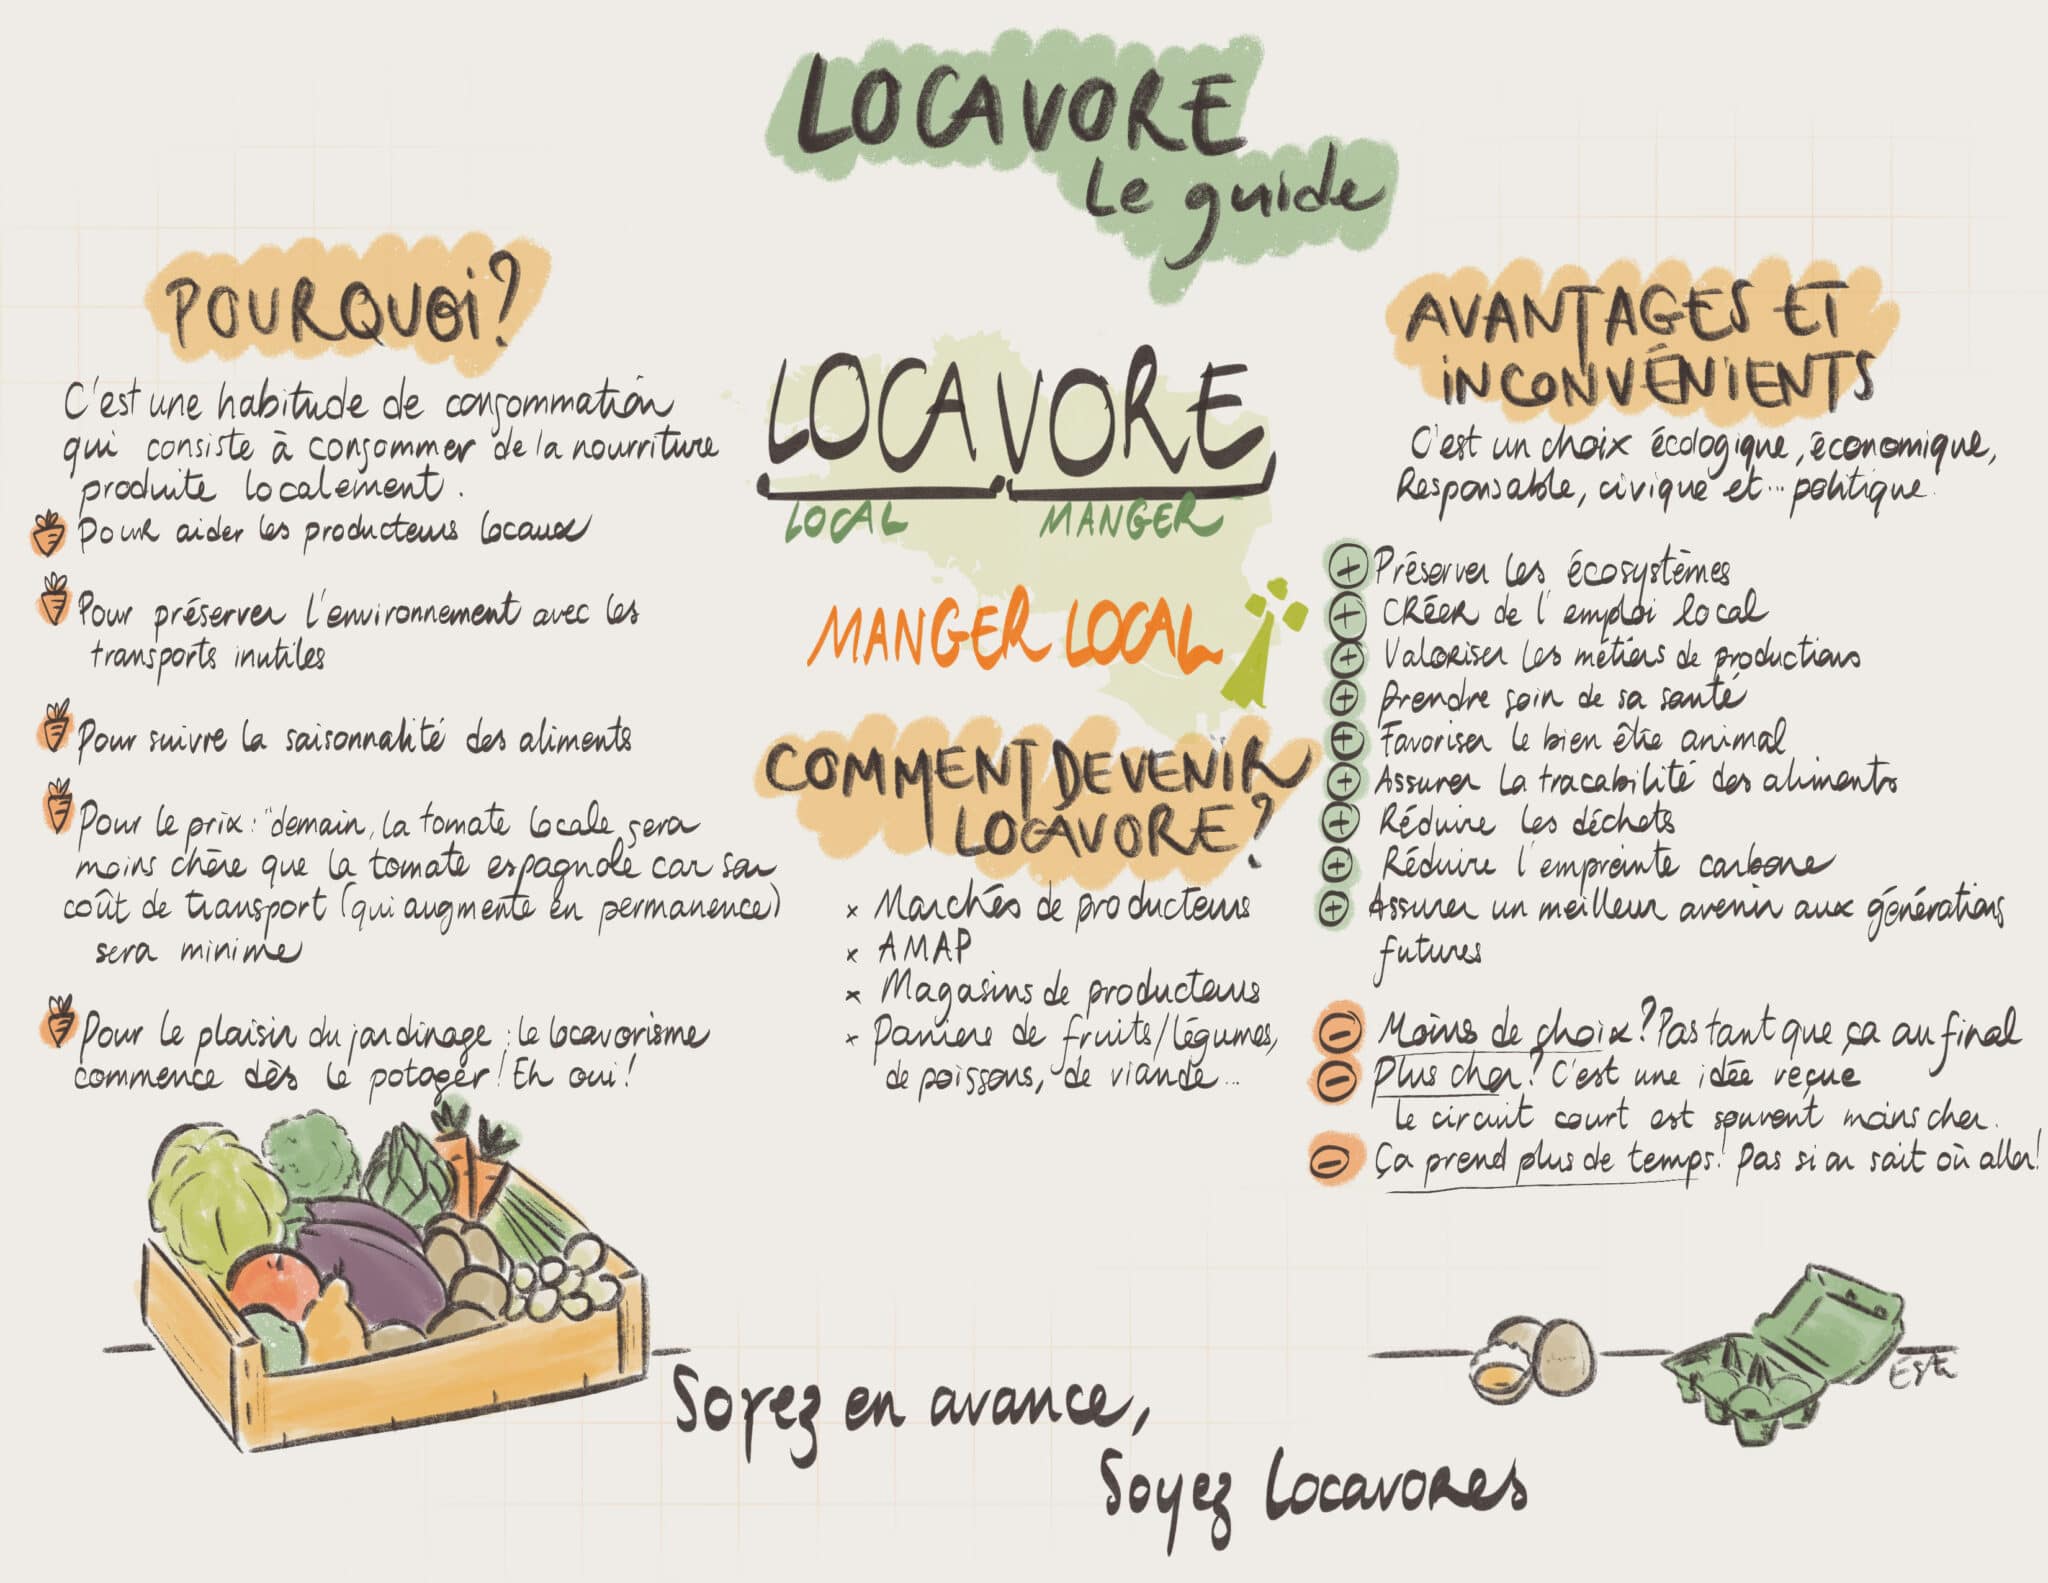 LOCAVORE
Le guide
POURQUOi?
C'est une habitude de consommation
qui consiste à consommer de la nourriture
produite localement.
Pour aider les producteurs locaux
Pour préserver l'environnement avec les
transports inutiles
Pour suivre la saisonnalité des aliments
Pour le prix : "demain, la tomate locale sera
moins chère que la tomate espagnole car son
coût de transport (qui augmente en permanence)
sera minime
Pour le plaisir du jardinage : le locavorisme
commence dès le potager ! Eh oui !
LOCAVORE
LOCAL MANGER
MANGER LOCAL
COMMENT DEVENIR
LOCAVORE ?
x Marchés de producteurs
x AMAP
x Magasins de producteurs
x Paniers de fruits/légumes,
de poissons, de viande...
AVANTAGES ET
iNCONVÉNiENTS
C'est un choix écologique, économique,
Responsable, civique et... politique.
+ Préserver les écosystèmes
+ CRÉER de l'emploi local
+ Valoriser les métiers de productions
+ Prendre soin de sa santé
+ Favoriser le bien être animal
+ Assurer la tracabilité des aliments
+ Réduire les déchets
+ Réduire l'empreinte carbone
+ Assurer un meilleur avenir aux générations
futures
- Moins de choix ? Pas tant que ça au final
- Plus cher ? C'est une idée reçue
Le circuit court est souvent moins cher.
- Ça prend plus de temps ! Pas si on sait où aller !
Soyez en avance,
Soyez Locavores